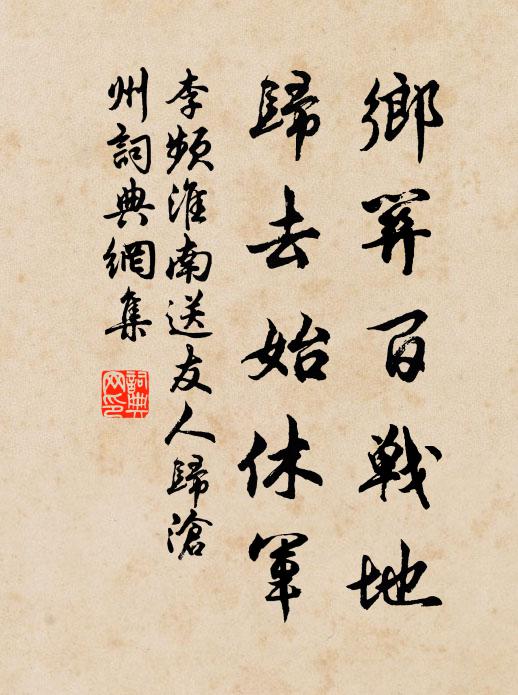 鄉笄百戰地
歸去始休軍
李頻淮南送友人歸滄
州詞典網集
詞典
网印